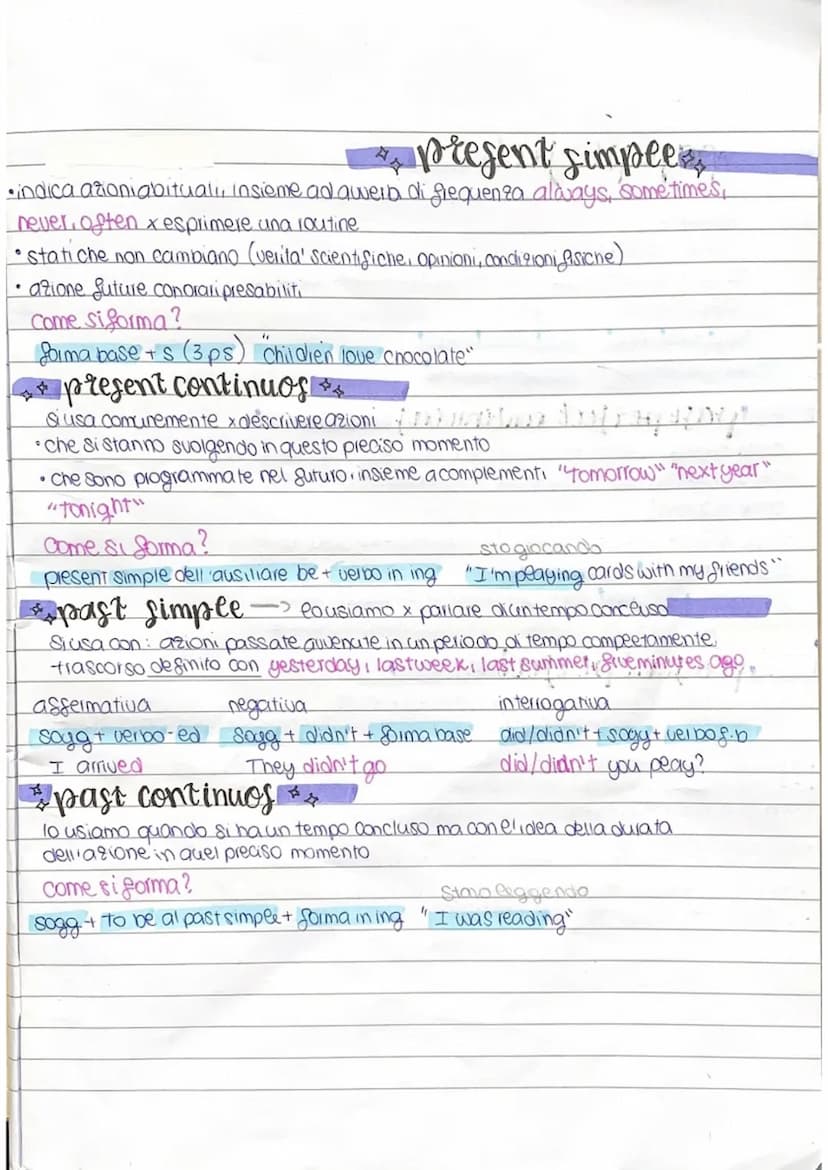 present simple
•indica azioni abituali, insieme ad avverb di frequenza always, sometimes,
never, often x esprimere una routine
• stati che non cambiano (verita' scientifiche, opinioni, condizioni fisiche)
• azione future con orari presabiliti
come si forma?
forma base + s (3ps) "children love chocolate"
present continuos
Si usa comunemente x descrivere azioni
• che si stanno svolgendo in questo preciso momento
• che sono programmate nel futuro, insieme a complementi "tomorrow" "next year"
"tonight"
come si forma? sto giocando
present simple dell'ausiliare be + verbo in ing "I'm playing cards with my friends"
past simple —> lo usiamo x parlare di un tempo concluso
Si usa con: azioni passate avvenute in un periodo di tempo completamente
trascorso definito con yesterday, last week, last summer, five minutes ago.
affermativa negativa interrogativa
sogg + verbo-ed sogg + didn't + forma base did/didn't + sogg + verbo f.b
I arrived They didn't go did/didn't you play?
past continuos
lo usiamo quando si ha un tempo concluso ma con l'idea della durata
dell'azione in quel preciso momento
come si forma? leggendo
sogg + to be al past simple + forma in ing "I was reading"